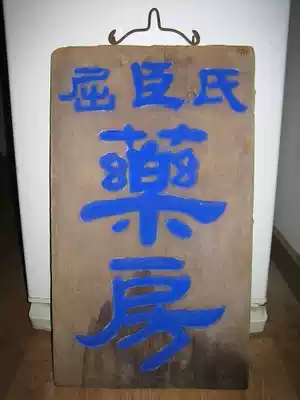 屈臣氏
藥
房